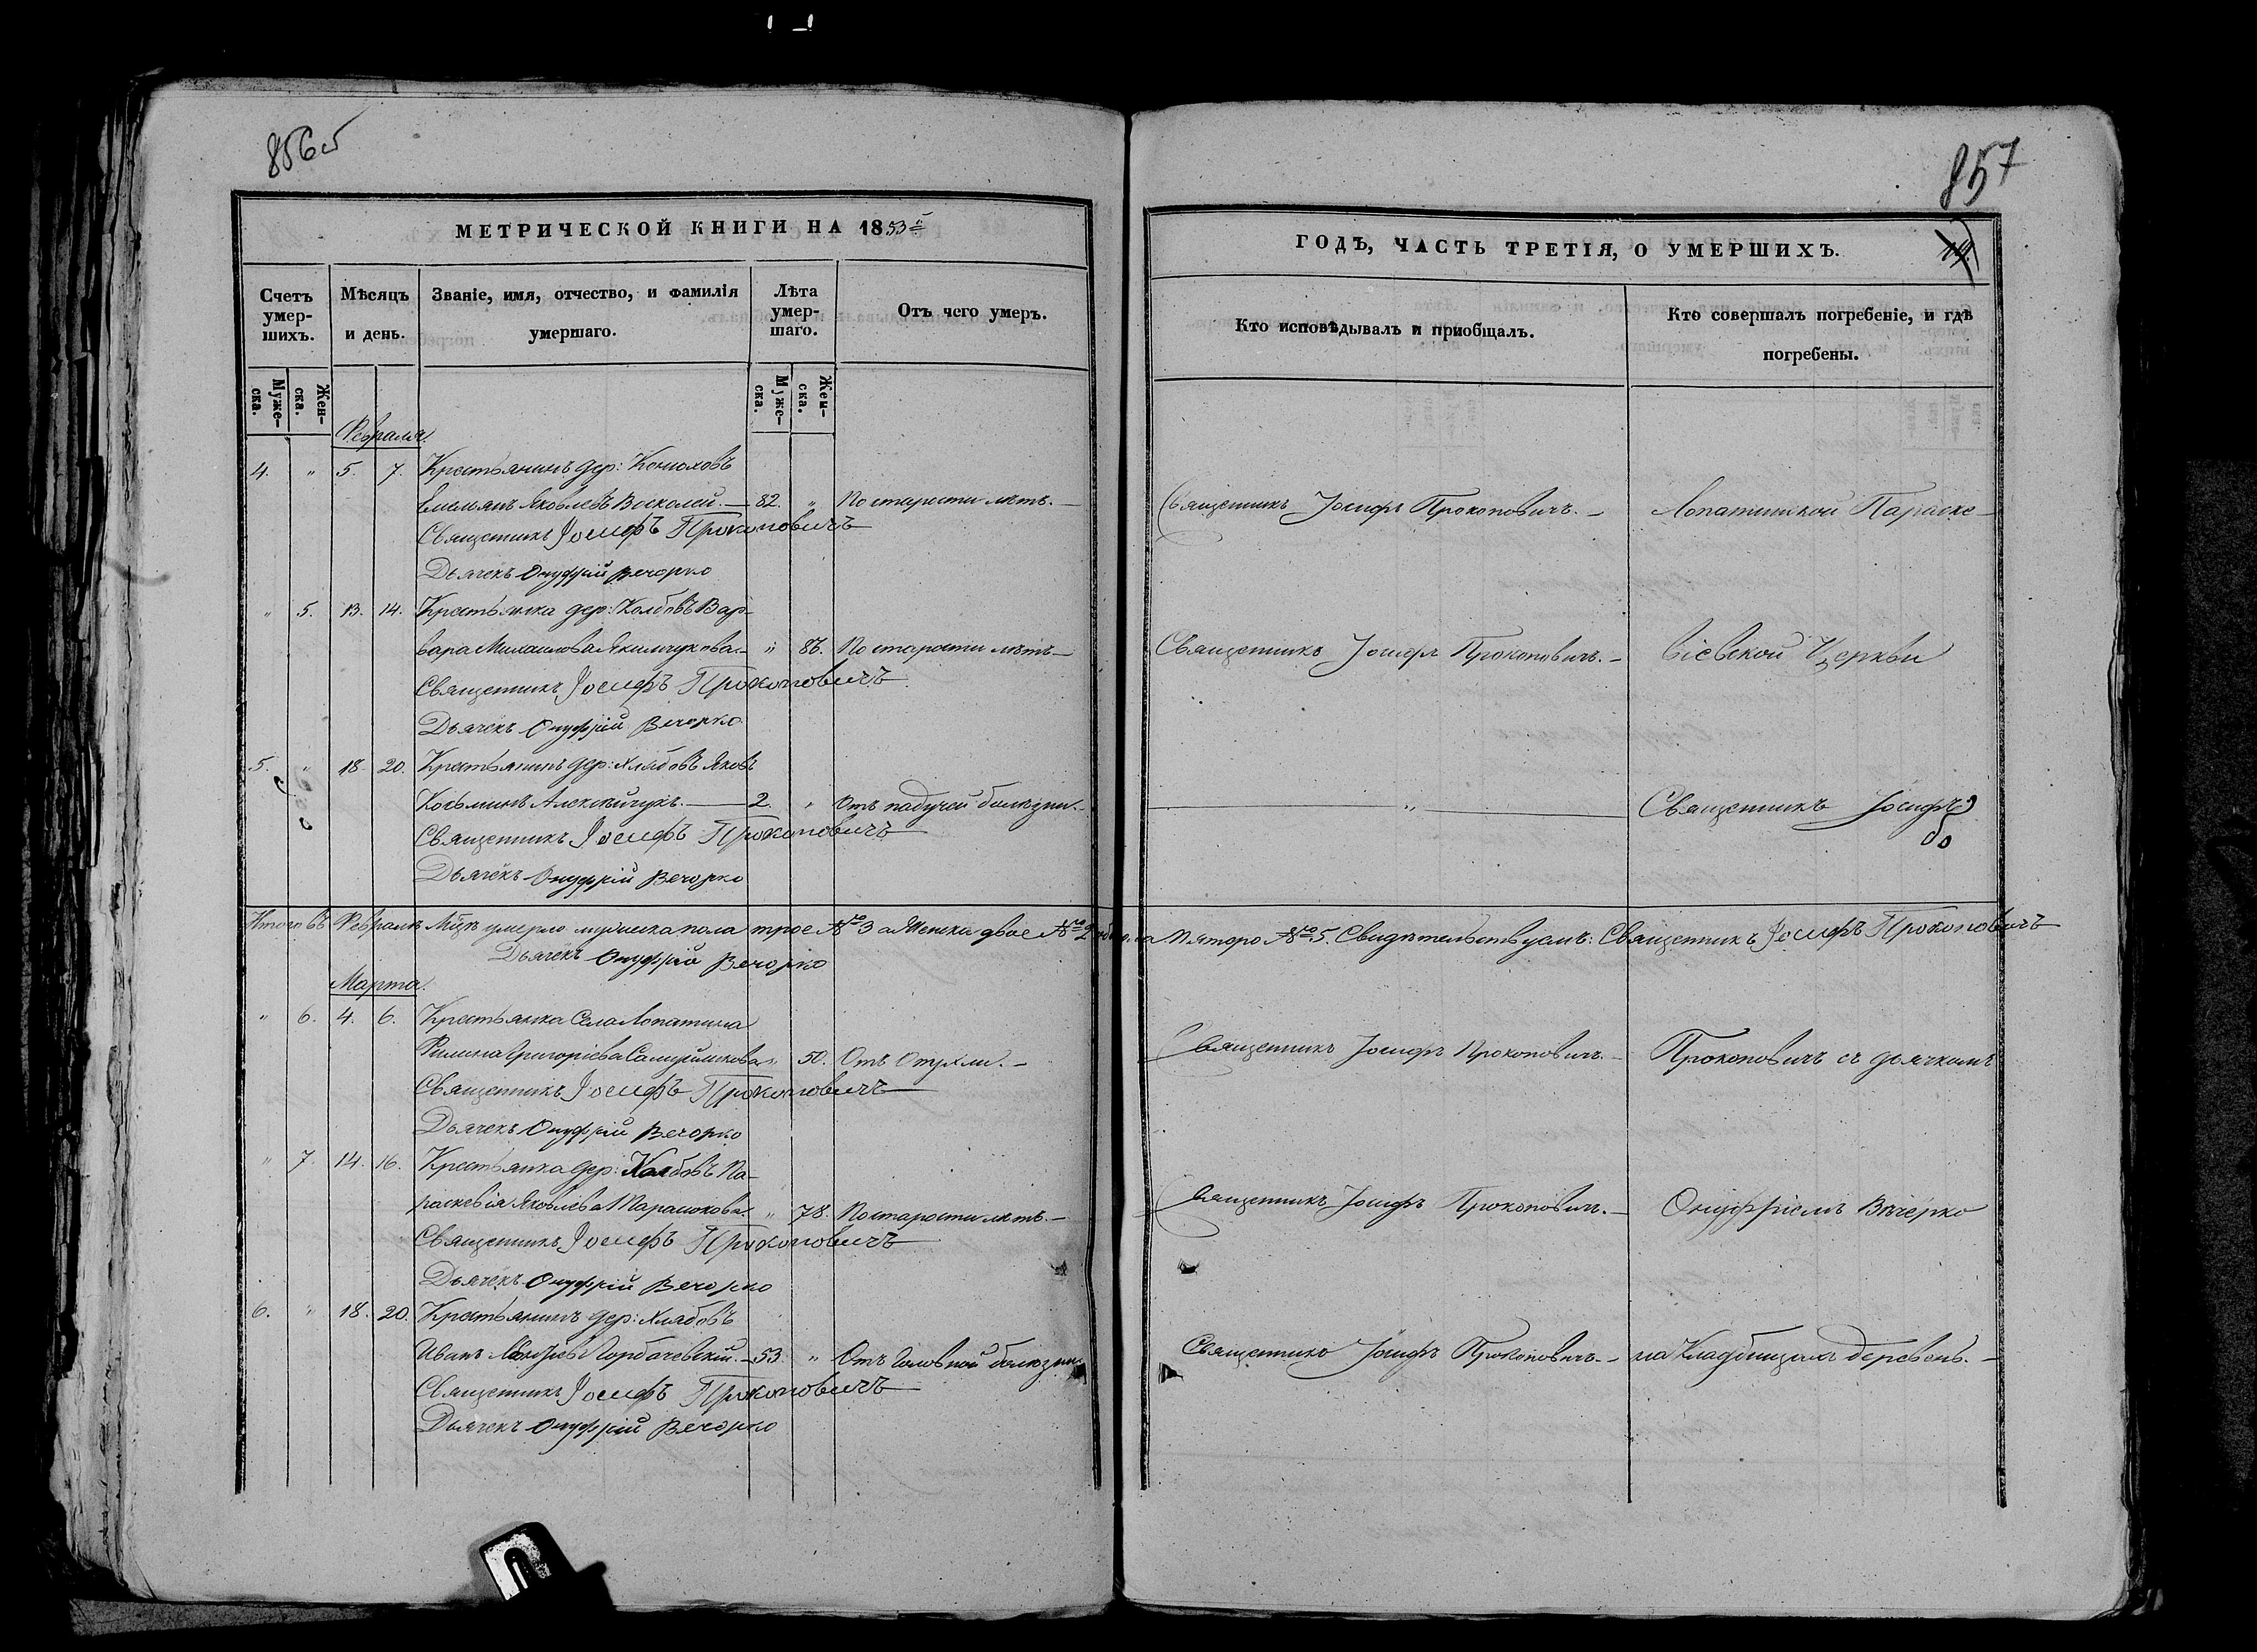 856об
МЕТРИЧЕСКОЙ КНИГИ НА 1853й
Счетъ умер-шихъ.
Мѣсяцъ и день.
Званіе, имя, отчество, и фамилія умершаго.
Лѣта умер-шаго.
Отъ чего умеръ.
Муже-ска.
Жен-ска.
Муже-ска.
Жен-ска.
Февраля.
4. " 5. 7. Крестьянинъ дер: Конюховъ
Емельянъ Яковлевъ — 82. " По старости лѣтъ. —
Священникъ Іосифъ Прокоповичъ
Дьячекъ Онуфрій Вечорко
" 5. 13. 14. Крестьянка дер: Колбовъ Вар-
вара Михайлова Якимчукова — " 86. По старости лѣтъ —
Священникъ Іосифъ Прокоповичъ
Дьячекъ Онуфрій Вечорко
5. " 18. 20. Крестьянинъ дер: Хлябовъ Яковъ
Козьминъ Алексѣйчукъ. — 2. " Отъ падучей болѣзни. —
Священникъ Іосифъ Прокоповичъ
Дьячекъ Онуфрій Вечорко
Итого въ Февралѣ Мцѣ умерло мужеска пола трое № 3 а Женска двое № 2 обоего пятеро № 5. Свидѣтельствуемъ: Священникъ Іосифъ Прокоповичъ
Дьячекъ Онуфрій Вечорко
Марта.
" 6. 4. 6. Крестьянка Села Лопатина
Григоріева " 50. Отъ Опухли. —
Священникъ Іосифъ Прокоповичъ
Дьячекъ Онуфрій Вечорко
" 7. 14. 16. Крестьянка дер: Колбовъ Па-
раскевія Яковлева " 78. По старости лѣтъ. —
Священникъ Іосифъ Прокоповичъ
Дьячекъ Онуфрій Вечорко
6. " 18. 20. Крестьянинъ дер: Хлябовъ
Иванъ Горбачевскій. — 53. " Отъ Головной болѣзни
Священникъ Іосифъ Прокоповичъ
Дьячекъ Онуфрій Вечорко
857
ГОДЪ, ЧАСТЬ ТРЕТІЯ, О УМЕРШИХЪ.
Кто исповѣдывалъ и пріобщалъ.
Кто совершалъ погребеніе, и гдѣ погребены.
Священникъ Іосифъ Прокоповичъ. — Лопатинской Параске-
Священникъ Іосифъ Прокоповичъ. — віевской Церкви
" Священникъ Іосифъ
Священникъ Іосифъ Прокоповичъ. — Прокоповичъ съ дьячкомъ
Священникъ Іосифъ Прокоповичъ. — Онуфріемъ Вечерко
Священникъ Іосифъ Прокоповичъ. — на Кладбищахъ деревень. —